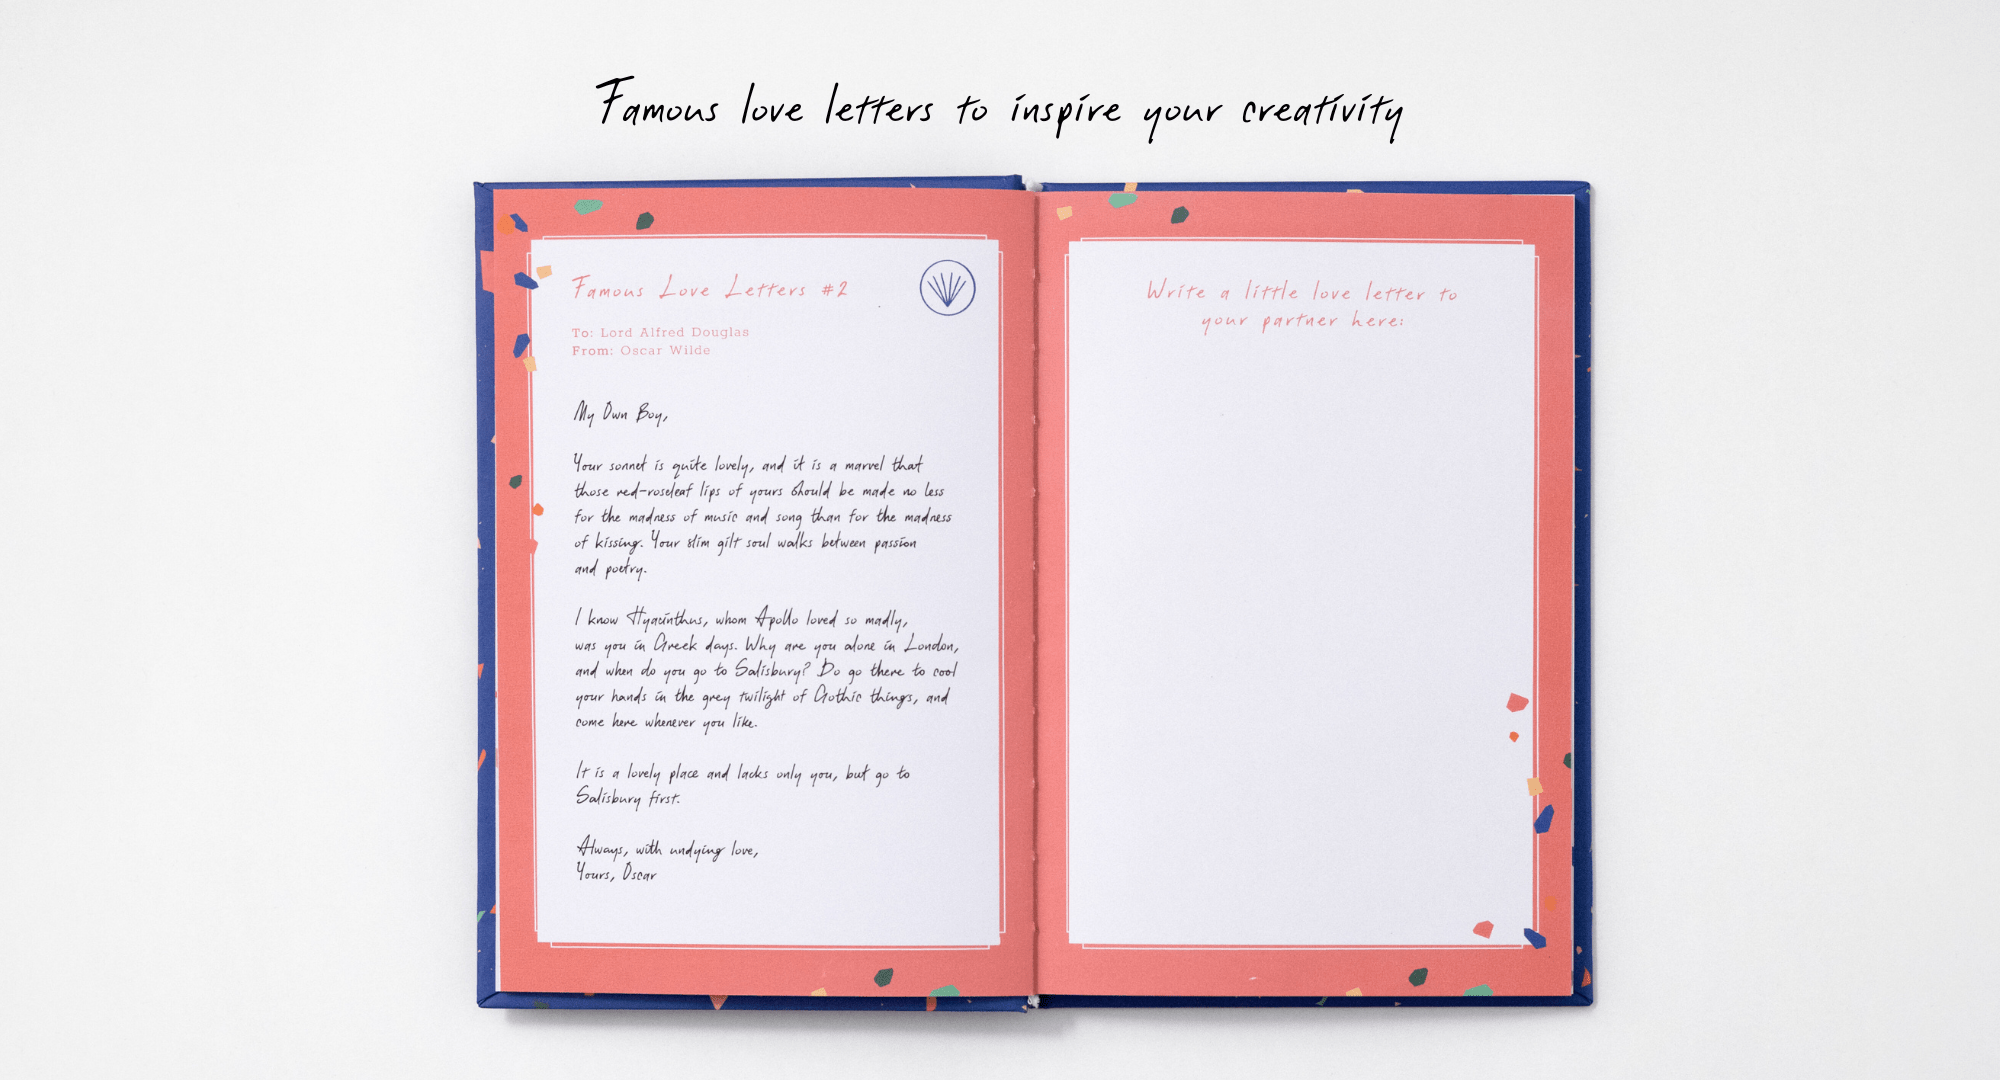 Famous love letters to inspire your creativity
Famous Love Letters #2
To: Lord Alfred Douglas
From: Oscar Wilde
My Own Boy,
Your sonnet is quite lovely, and it is a marvel that
those red-roseleaf lips of yours should be made no less
for the madness of music and song than for the madness
of kissing. Your slim gilt soul walks between passion
and poetry.
I know Hyacinthus, whom Apollo loved so madly,
was you in Greek days. Why are you alone in London,
and when do you go to Salisbury? Do go there to cool
your hands in the grey twilight of Gothic things, and
come here whenever you like.
It is a lovely place and lacks only you, but go to
Salisbury first.
Always, with undying love,
Yours, Oscar
Write a little love letter to
your partner here: